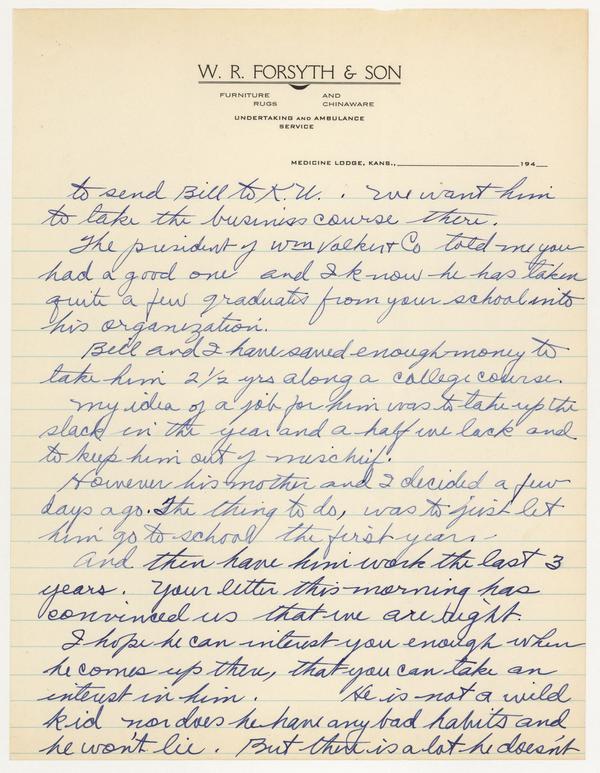 W. R. FORSYTH & SON
FURNITURE AND
RUGS CHINAWARE
UNDERTAKING AND AMBULANCE
SERVICE
MEDICINE LODGE, KANS., 194
to send Bill to K.U. . We want him
to take the business course there.
The president of Wm Volker & Co told me you
had a good one and I know he has taken
quite a few graduates from your school into
his organization.
Bill and I have saved enough money to
take him 2 1/2 yrs along a college course.
My idea of a job for him was to take up the
slack in the year and a half we lack and
to keep him out of mischief.
However his mother and I decided a few
days ago. The thing to do, was to just let
him go to school the first year -
And then have him work the last 3
years. Your letter this morning has
convinced us that we are right.
I hope he can interest you enough when
he comes up there, that you can take an
interest in him. He is not a wild
kid nor does he have any bad habits and
he won't lie. But there is a lot he doesn't